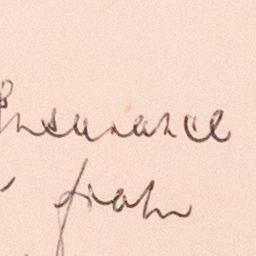 Insurance
from